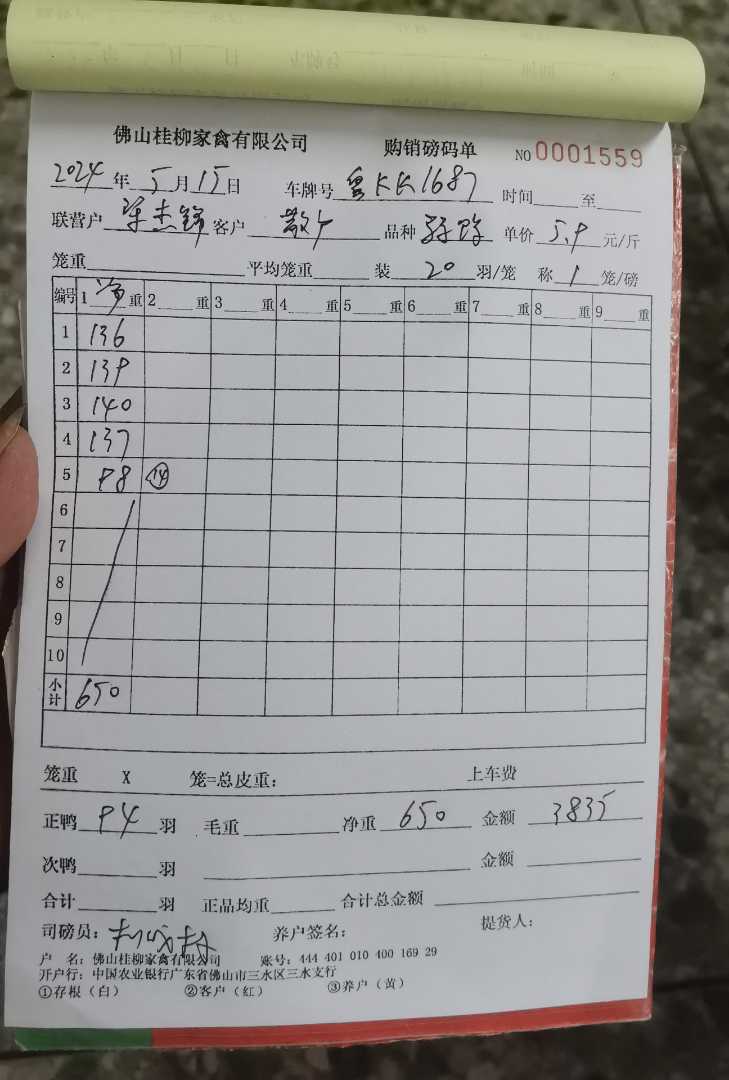 佛山桂柳家禽有限公司 购销磅码单 NO 0001559
2024年 5月15日 车牌号 粤KK1687 时间 至
联营户 客户 散户 品种 单价 5.9 元/斤
笼重 平均笼重 装 20 羽/笼 称 1 笼/磅
编号 1 净 重 2 重 3 重 4 重 5 重 6 重 7 重 8 重 9 重
1 136
2 139
3 140
4 137
5 98 14
6
7
8
9
10
小计 650
笼重 X 笼=总皮重: 上车费
正鸭 94 羽 毛重 净重 650 金额 3835
次鸭 羽 金额
合计 羽 正品均重 合计总金额
司磅员: 养户签名: 提货人:
户 名: 佛山桂柳家禽有限公司 账号: 444 401 010 400 169 29
开户行: 中国农业银行广东省佛山市三水区三水支行
①存根(白) ②客户(红) ③养户(黄)